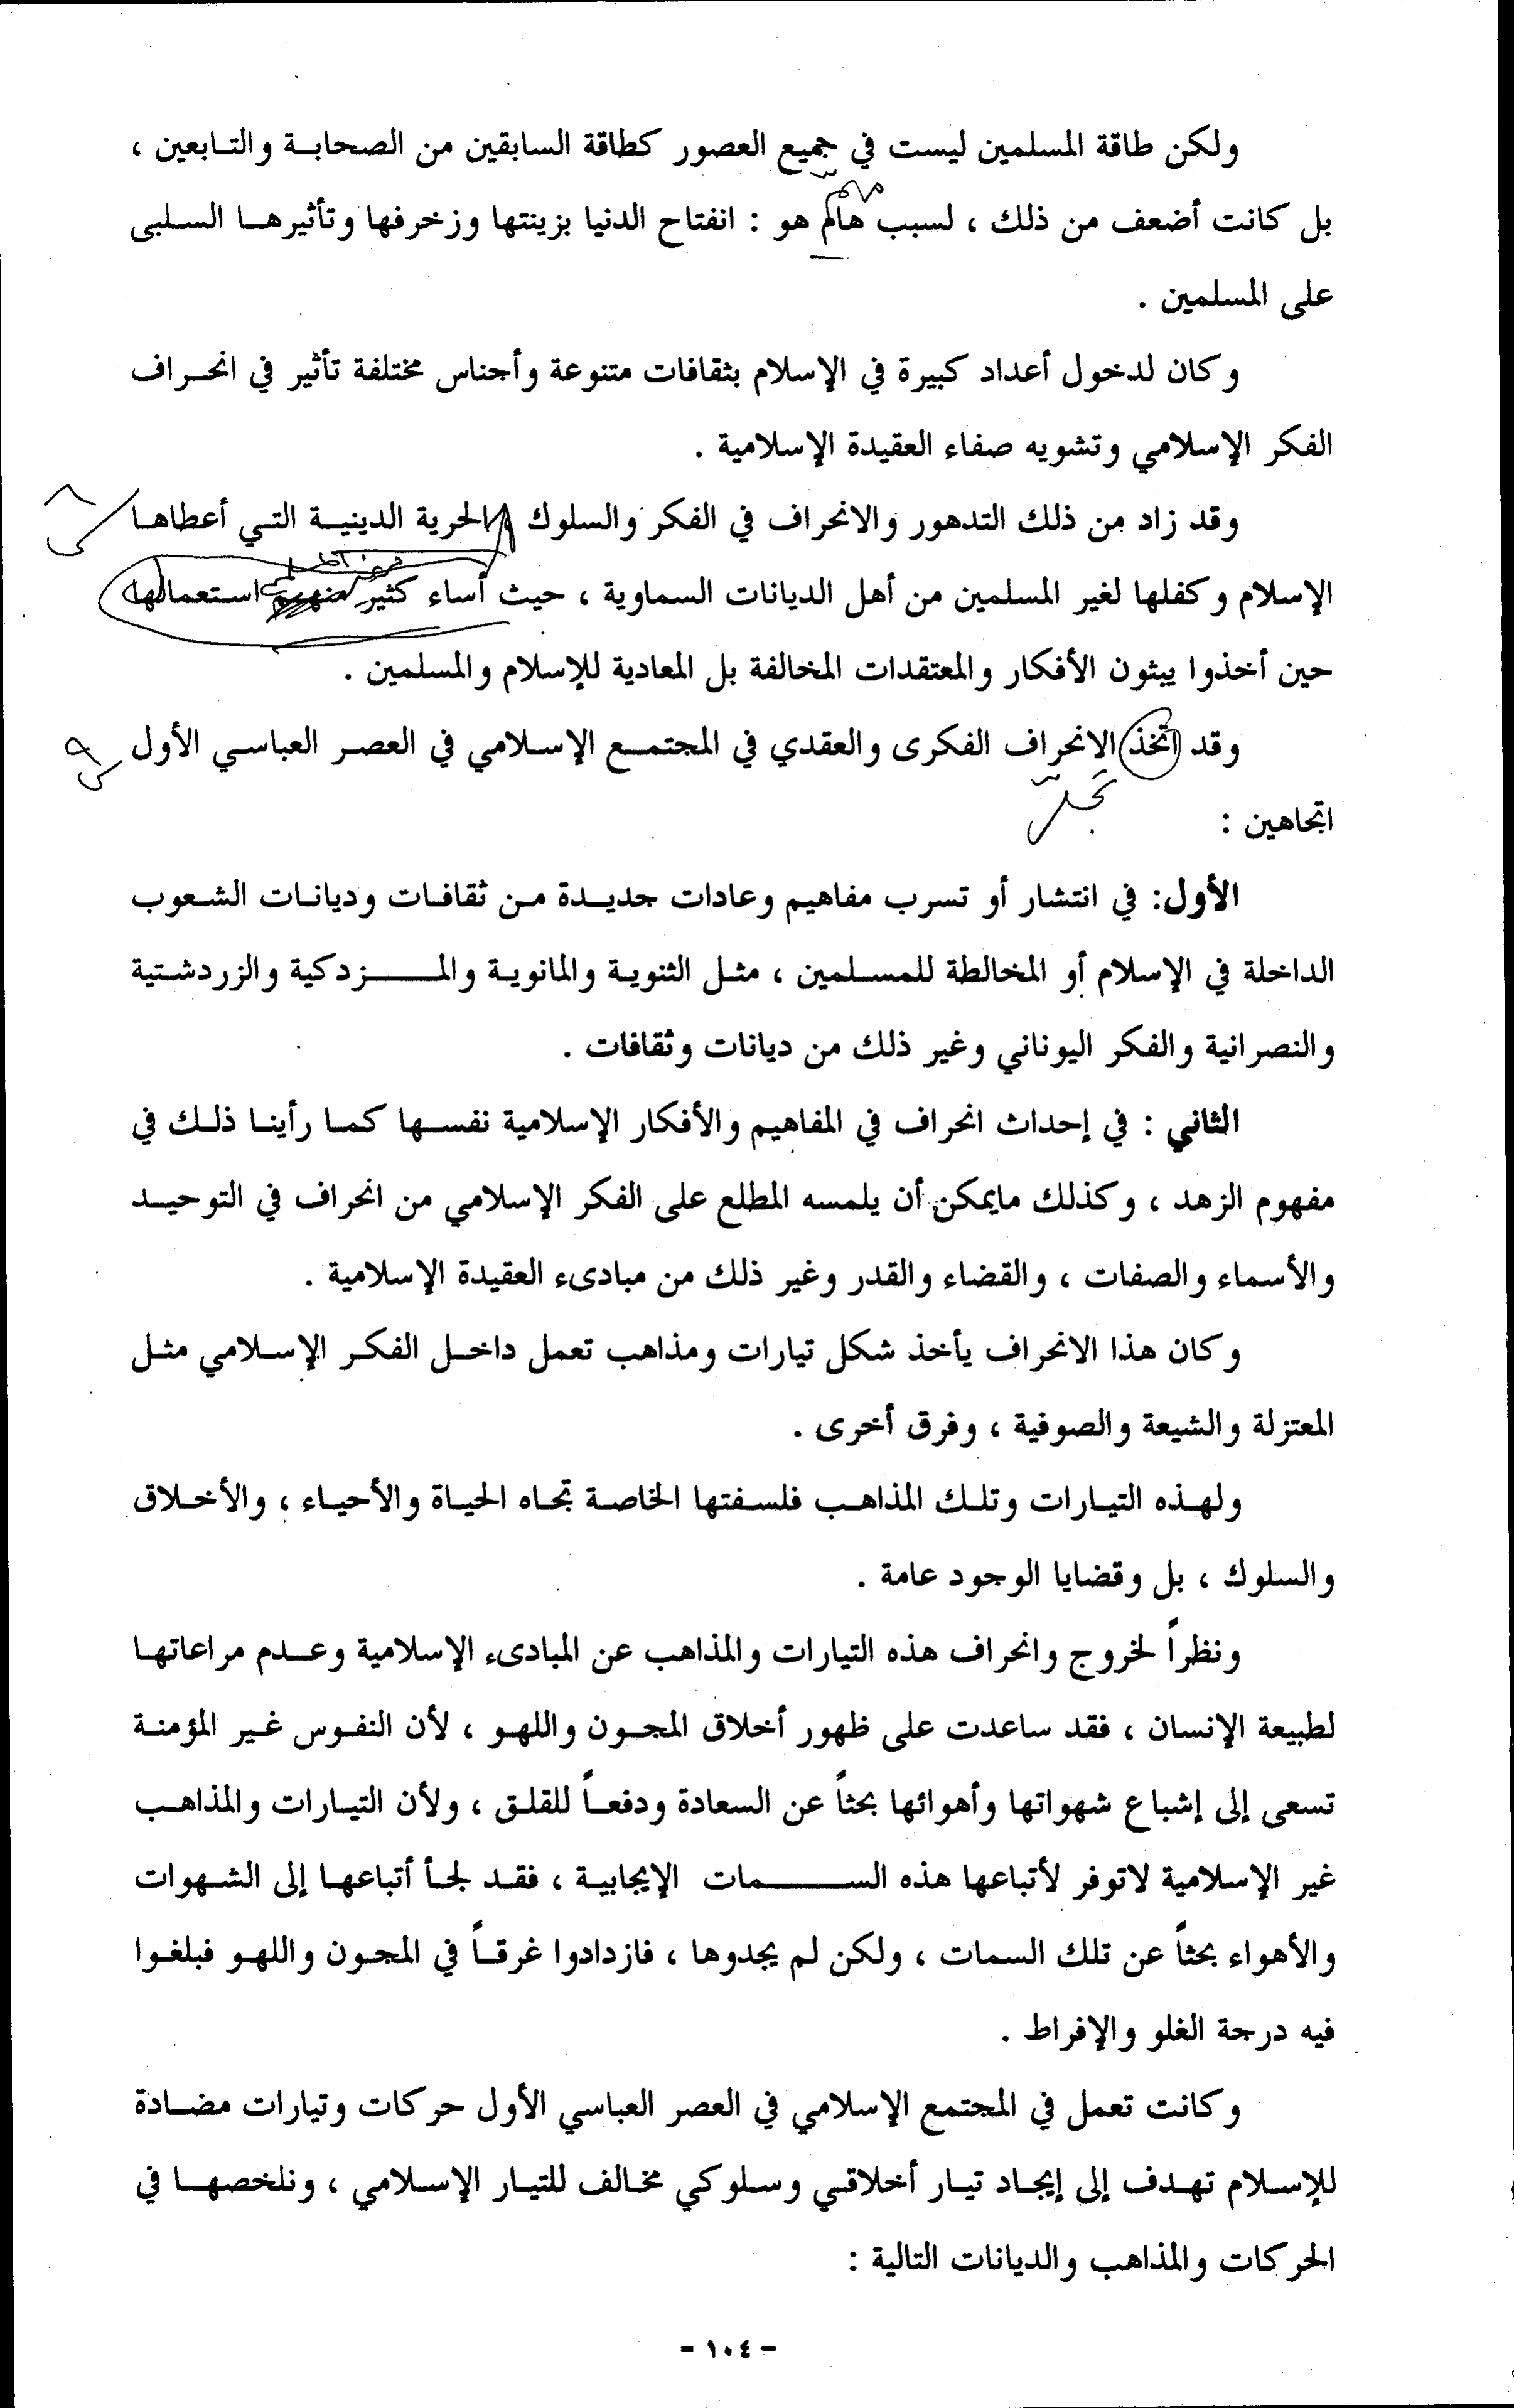 ولكن طاقة المسلمين ليست في جميع العصور كطاقة السابقين من الصحابة والتابعين ،
بل كانت أضعف من ذلك ، لسبب هام هو : انفتاح الدنيا بزينتها وزخرفها وتأثيرها السلبى
على المسلمين .
وكان لدخول أعداد كبيرة في الإسلام بثقافات متنوعة وأجناس مختلفة تأثير في انحراف
الفكر الإسلامي وتشويه صفاء العقيدة الإسلامية .
وقد زاد من ذلك التدهور والانحراف في الفكر والسلوك الحرية الدينية التي أعطاها
الإسلام وكفلها لغير المسلمين من أهل الديانات السماوية ، حيث أساء كثير منهم استعمالها
حين أخذوا يبثون الأفكار والمعتقدات المخالفة بل المعادية للإسلام والمسلمين .
وقد اتخذ الانحراف الفكرى والعقدي في المجتمع الإسلامي في العصر العباسي الأول
اتجاهين :
الأول: في انتشار أو تسرب مفاهيم وعادات جديدة من ثقافات وديانات الشعوب
الداخلة في الإسلام أو المخالطة للمسلمين ، مثل الثنوية والمانوية والمزدكية والزردشتية
والنصرانية والفكر اليوناني وغير ذلك من ديانات وثقافات .
الثاني : في إحداث انحراف في المفاهيم والأفكار الإسلامية نفسها كما رأينا ذلك في
مفهوم الزهد ، وكذلك مايمكن أن يلمسه المطلع على الفكر الإسلامي من انحراف في التوحيد
والأسماء والصفات ، والقضاء والقدر وغير ذلك من مبادىء العقيدة الإسلامية .
وكان هذا الانحراف يأخذ شكل تيارات ومذاهب تعمل داخل الفكر الإسلامي مثل
المعتزلة والشيعة والصوفية ، وفرق أخرى .
ولهذه التيارات وتلك المذاهب فلسفتها الخاصة تجاه الحياة والأحياء ، والأخلاق
والسلوك ، بل وقضايا الوجود عامة .
ونظراً لخروج وانحراف هذه التيارات والمذاهب عن المبادىء الإسلامية وعدم مراعاتها
لطبيعة الإنسان ، فقد ساعدت على ظهور أخلاق المجون واللهو ، لأن النفوس غير المؤمنة
تسعى إلى إشباع شهواتها وأهوائها بحثاً عن السعادة ودفعاً للقلق ، ولأن التيارات والمذاهب
غير الإسلامية لاتوفر لأتباعها هذه السمات الإيجابية ، فقد لجأ أتباعها إلى الشهوات
والأهواء بحثاً عن تلك السمات ، ولكن لم يجدوها ، فازدادوا غرقاً في المجون واللهو فبلغوا
فيه درجة الغلو والإفراط .
وكانت تعمل في المجتمع الإسلامي في العصر العباسي الأول حركات وتيارات مضادة
للإسلام تهدف إلى إيجاد تيار أخلاقي وسلوكي مخالف للتيار الإسلامي ، ونلخصها في
الحركات والمذاهب والديانات التالية :
- ١٠٤ -